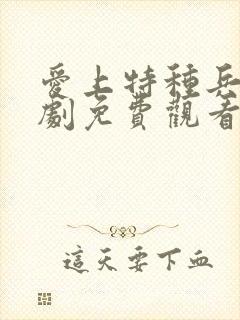 愛上特種兵
劇免費觀看
這天要下血